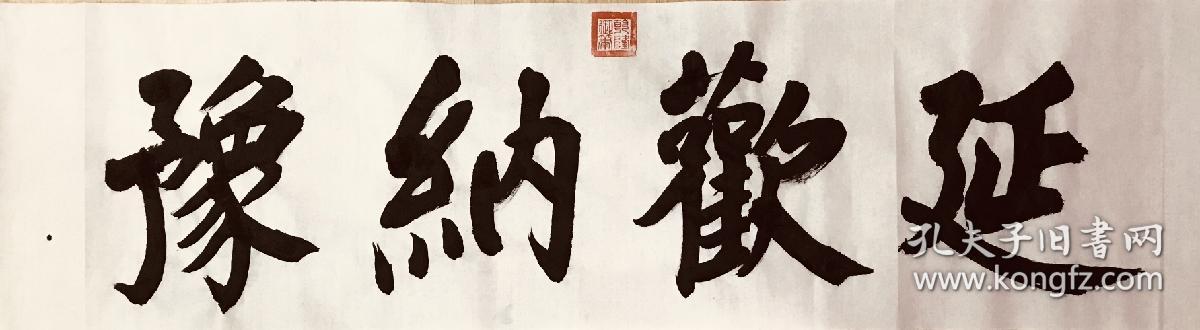 延歡納豫
孔夫子旧書网
www.kongfz.com